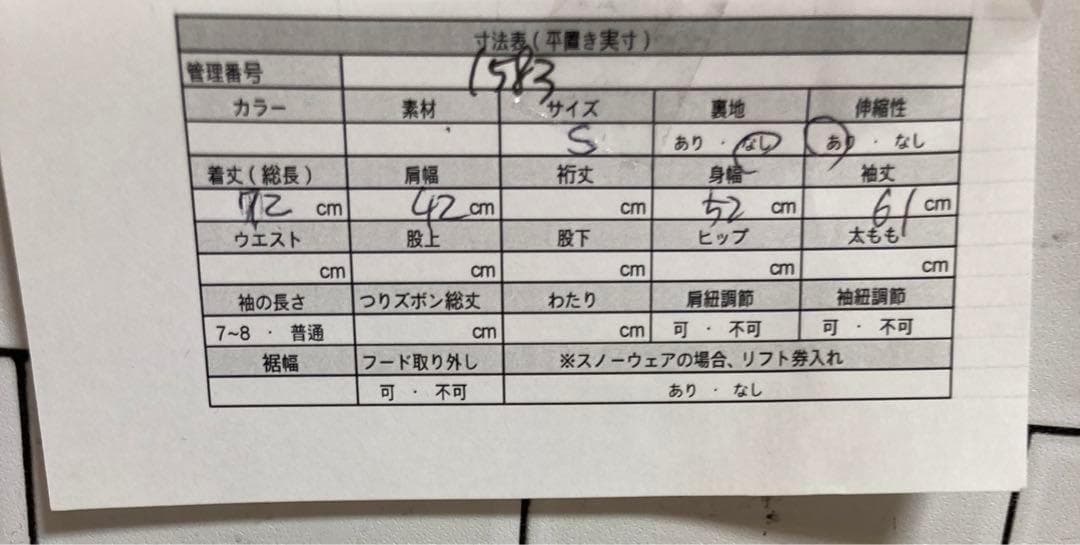 寸法表(平置き実寸)
管理番号 1583
カラー 素材 サイズ 裏地 伸縮性
S あり ・ なし あり ・ なし
着丈(総長) 肩幅 裄丈 身幅 袖丈
72 cm 42 cm cm 52 cm 61 cm
ウエスト 股上 股下 ヒップ 太もも
cm cm cm cm cm
袖の長さ つりズボン総丈 わたり 肩紐調節 袖紐調節
7~8 ・ 普通 cm cm 可 ・ 不可 可 ・ 不可
裾幅 フード取り外し ※スノーウェアの場合、リフト券入れ
可 ・ 不可 あり ・ なし